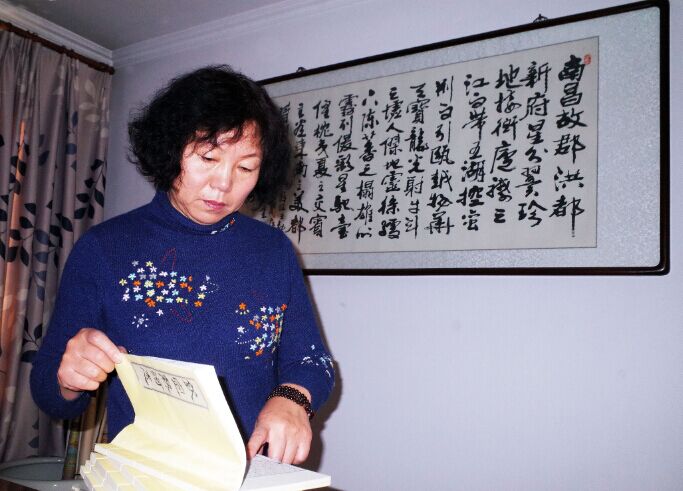 南昌故郡洪都
新府星分翼轸
地接衡廬襟三
江而帶五湖控蛮
荆而引瓯越物華
天寶龍光射牛斗
之墟人傑地靈徐孺
下陈蕃之榻雄州
霧列俊彩星馳臺
隍枕夷夏之交賓
主盡東南之美都